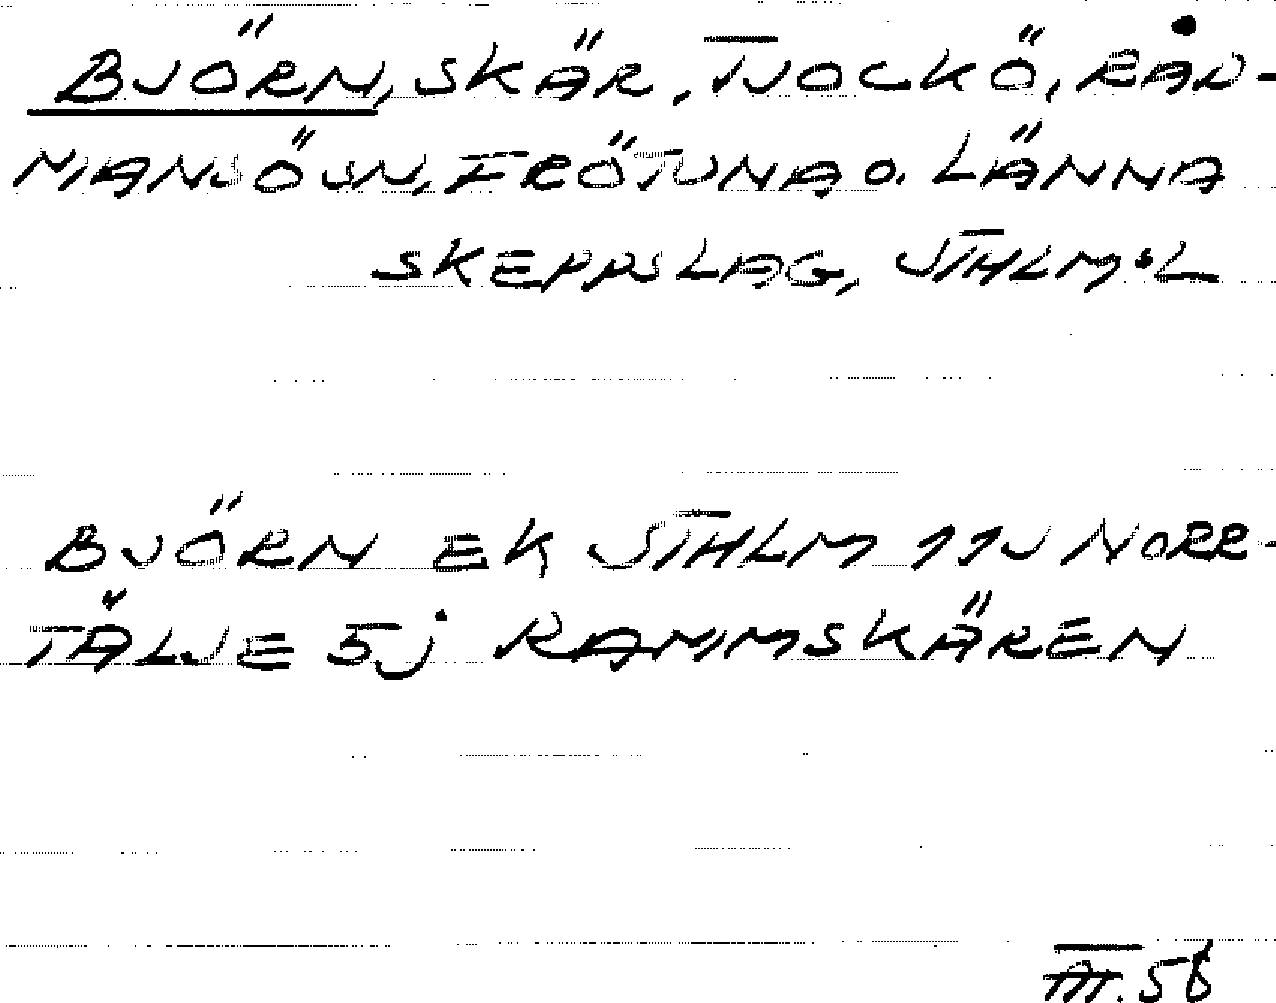 BJÖRN, SKÄR, TJOCKÖ, RÅD-
MANSÖ SN, FRÖTUNA O. LÄNNA
SKEPPSLAG, STHLMS L
BJÖRN EK STHLM 11J NORR-
TÄLJE 5j RAMMSKÄREN
III. 56